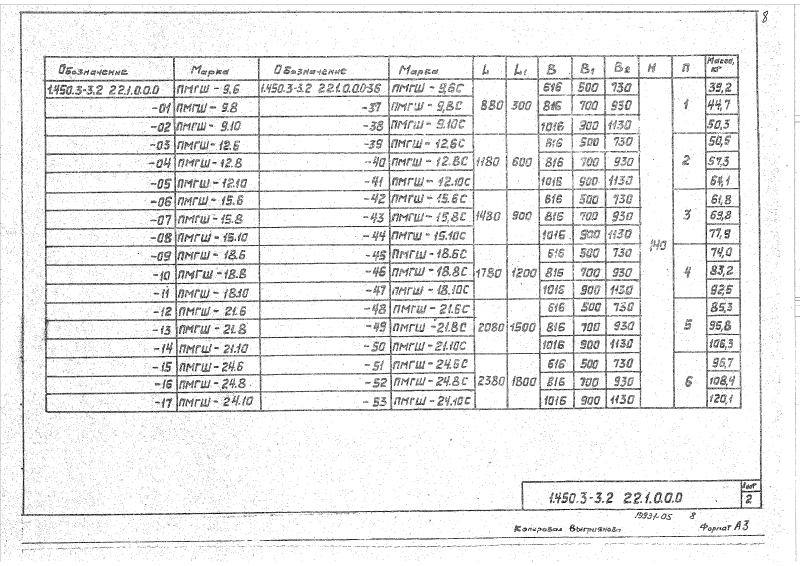 8
Обозначение Марка Обозначение Марка L L1 B B1 B2 H П Масса, кг
1.450.3-3.2 22.1.0.0.0 ПМГШ - 9.6 1.450.3-3.2 22.1.0.0.0-36 ПМГШ - 9,6С 880 300 616 500 730 140 1 39,2
-01 ПМГШ - 9.8 -37 ПМГШ - 9,8С 816 700 930 44,7
-02 ПМГШ - 9.10 -38 ПМГШ - 9.10С 1016 900 1130 50,3
-03 ПМГШ - 12.6 -39 ПМГШ - 12.6С 1180 600 616 500 730 2 50,5
-04 ПМГШ - 12.8 -40 ПМГШ - 12.8С 816 700 930 57,3
-05 ПМГШ - 12.10 -41 ПМГШ - 12.10С 1016 900 1130 64,1
-06 ПМГШ - 15.6 -42 ПМГШ - 15.6С 1480 900 616 500 730 3 61,8
-07 ПМГШ - 15.8 -43 ПМГШ - 15,8С 816 700 930 69,8
-08 ПМГШ - 15.10 -44 ПМГШ - 15.10С 1016 900 1130 77,9
-09 ПМГШ - 18.6 -45 ПМГШ - 18.6С 1780 1200 616 500 730 4 74,0
-10 ПМГШ - 18.8 -46 ПМГШ - 18.8С 816 700 930 83,2
-11 ПМГШ - 18.10 -47 ПМГШ - 18.10С 1016 900 1130 92,5
-12 ПМГШ - 21.6 -48 ПМГШ - 21.6С 2080 1500 616 500 730 5 85,3
-13 ПМГШ - 21.8 -49 ПМГШ - 21.8С 816 700 930 95,8
-14 ПМГШ - 21.10 -50 ПМГШ - 21.10С 1016 900 1130 106,3
-15 ПМГШ - 24.6 -51 ПМГШ - 24.6С 2380 1800 616 500 730 6 96,7
-16 ПМГШ - 24.8 -52 ПМГШ - 24.8С 816 700 930 108,4
-17 ПМГШ - 24.10 -53 ПМГШ - 24.10С 1016 900 1130 120,1
1.450.3-3.2 22.1.0.0.0 Лист 2
19931-05 8
Копировал Выгриянова Формат А3